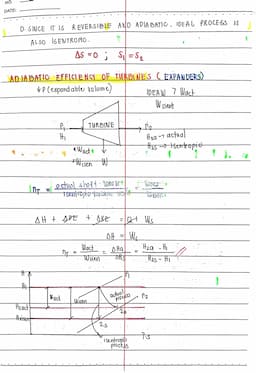 NO.
DATE:
D. SINCE IT IS REVERSIBLE AND ADIABATIC, IDEAL PROCESS IS
ALSO ISENTROPIC.
ΔS = 0 ; S₁ = S₂
ADIABATIC EFFICIENCY OF TURBINES (EXPANDERS)
↓P (expandable volume)
IDEAL > Wact
P₁
H₁
TURBINE
P₂
H₂a → actual
H₂s → isentropic
Wact
Wisen
ηT = actual shaft
ΔH + ΔPE + ΔKE = Q + Ws
ΔH = Ws
ηT = Wact = ΔHa = H₂a - H₁
Wisen ΔHs H₂s - H₁
H
P₁
H₁
Wact
Wisen
actual process
P₂
2a
2s
isentropic process
S